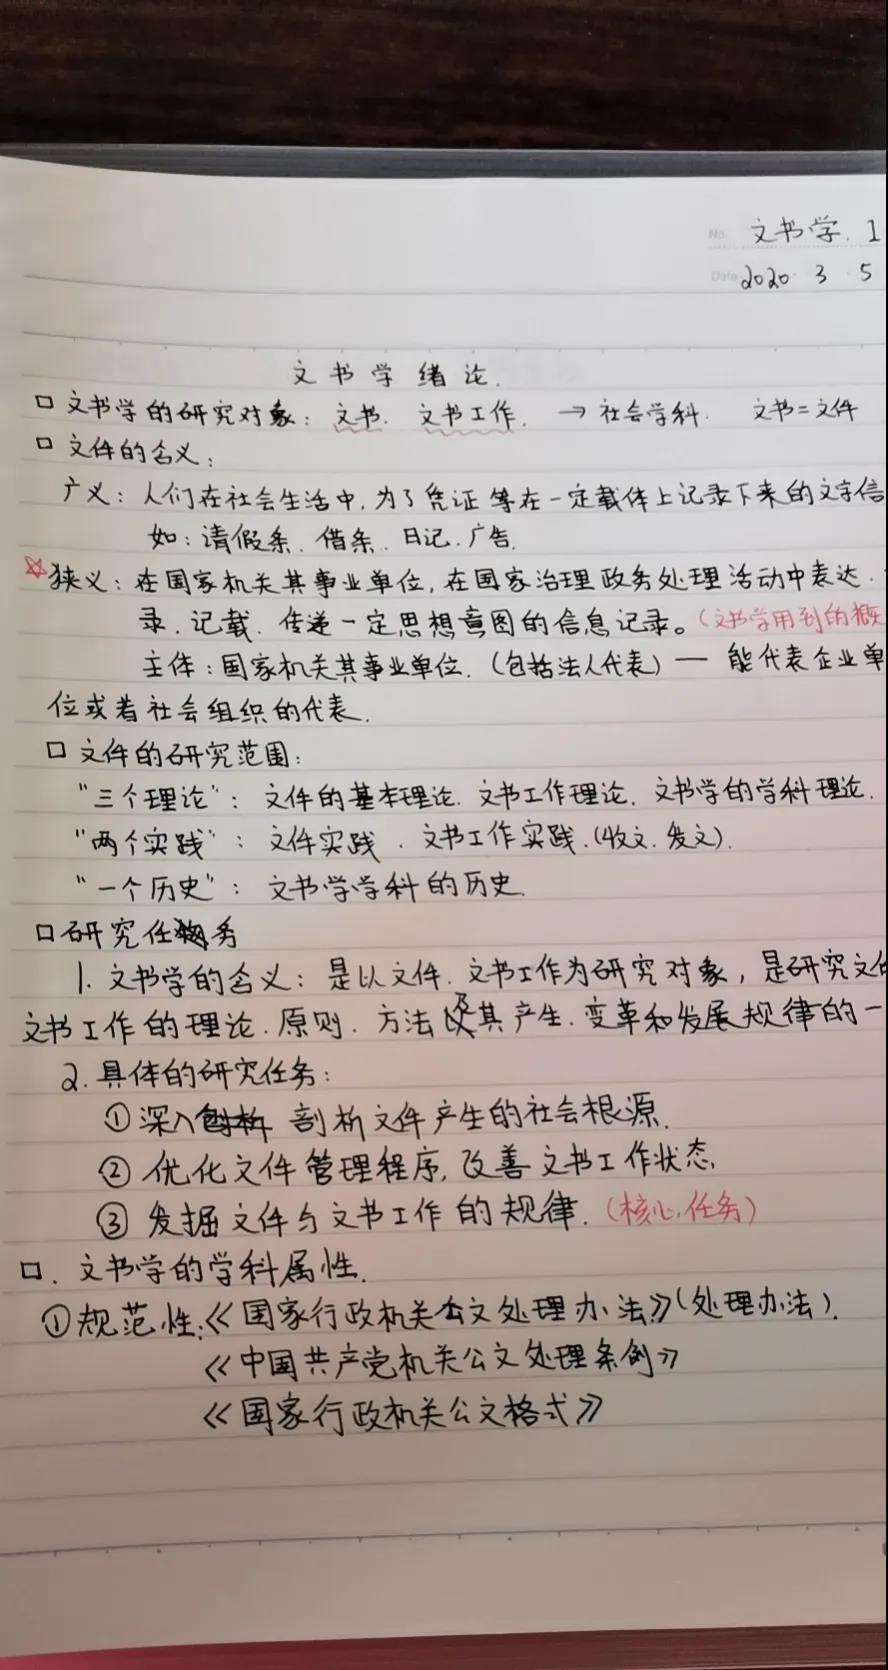 No. 文书学. 1
Date 2020 3 5
文书学绪论.
口 文书学的研究对象：文书. 文书工作. → 社会学科. 文书=文件
口 文件的含义：
广义：人们在社会生活中,为了凭证等在一定载体上记录下来的文字信
如：请假条. 借条. 日记. 广告.
☆狭义：在国家机关其事业单位,在国家治理政务处理活动中表达.
录. 记载. 传递一定思想意图的信息记录。(文书学用到的概
主体：国家机关其事业单位. (包括法人代表) — 能代表企业单
位或者社会组织的代表.
口 文件的研究范围：
"三个理论"：文件的基本理论. 文书工作理论. 文书学的学科理论.
"两个实践"：文件实践. 文书工作实践.(收文. 发文).
"一个历史"：文书学学科的历史.
口 研究任务
1. 文书学的含义：是以文件. 文书工作为研究对象, 是研究文件
文书工作的理论. 原则. 方法及其产生. 变革和发展规律的一
2. 具体的研究任务：
① 深入剖析文件产生的社会根源.
② 优化文件管理程序, 改善文书工作状态.
③ 发掘文件与文书工作的规律. (核心任务)
口. 文书学的学科属性.
①规范性:《国家行政机关公文处理办法》(处理办法).
《中国共产党机关公文处理条例》
《国家行政机关公文格式》